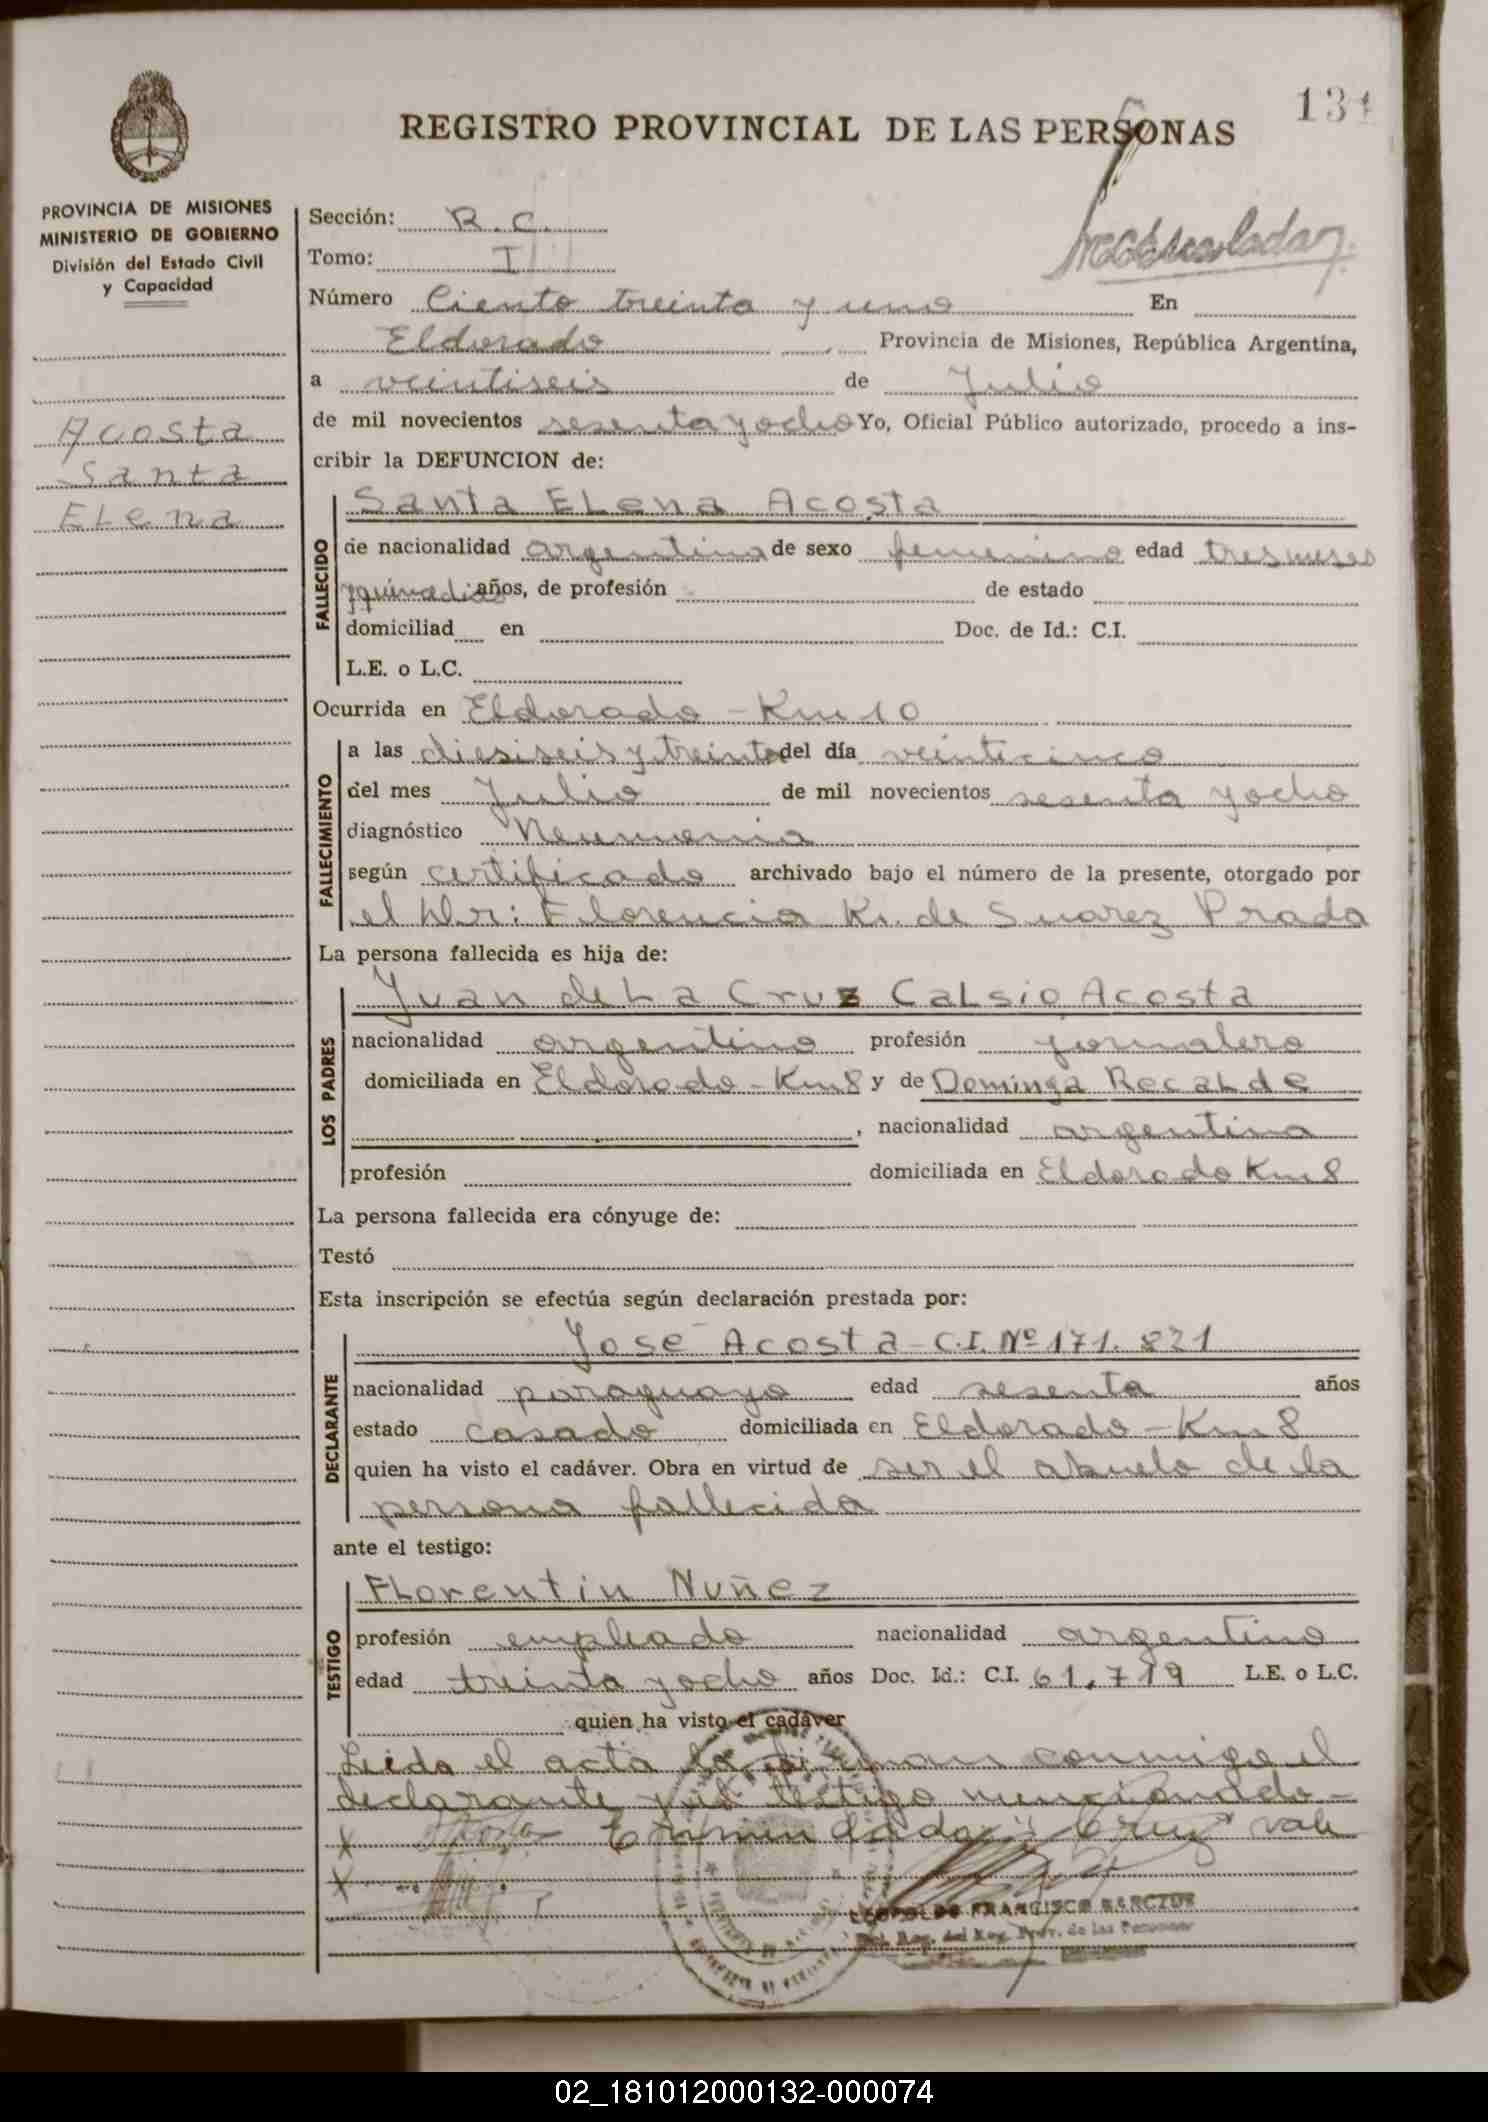 131
REGISTRO PROVINCIAL DE LAS PERSONAS
PROVINCIA DE MISIONES
MINISTERIO DE GOBIERNO
División del Estado Civil
y Capacidad
Acosta
Santa
Elena
Sección: R. C.
Tomo: I
Número Ciento treinta y uno En
Eldorado Provincia de Misiones, República Argentina,
a veintiseis de Julio
de mil novecientos sesenta y ocho Yo, Oficial Público autorizado, procedo a ins-
cribir la DEFUNCION de:
FALLECIDO
Santa Elena Acosta
de nacionalidad argentina de sexo femenino edad tres meses
y quince dias años, de profesión de estado
domiciliad en Doc. de Id.: C.I.
L.E. o L.C.
Ocurrida en Eldorado - Km 10
FALLECIMIENTO
a las diesiseis y treinta del día veinticinco
del mes Julio de mil novecientos sesenta y ocho
diagnóstico Neumonia
según certificado archivado bajo el número de la presente, otorgado por
el Dr: Florencia K. de Suarez Prado
La persona fallecida es hija de:
LOS PADRES
Juan de La Cruz Calsio Acosta
nacionalidad argentino profesión jornalero
domiciliada en Eldorado - Km 8 y de Dominga Recalde
, nacionalidad argentina
profesión domiciliada en Eldorado Km 8
La persona fallecida era cónyuge de:
Testó
Esta inscripción se efectúa según declaración prestada por:
DECLARANTE
José Acosta - C.I. Nº 171.821
nacionalidad paraguayo edad sesenta años
estado casado domiciliada en Eldorado - Km 8
quien ha visto el cadáver. Obra en virtud de ser el abuelo de la
persona fallecida
ante el testigo:
TESTIGO
Florentin Nuñez
profesión empleado nacionalidad argentino
edad treinta y ocho años Doc. Id.: C.I. 61.719 L.E. o L.C.
quien ha visto el cadáver
Leida el acta la firman conmigo el
declarante y el testigo mencionado -
Enmendado: "Cruz" vale
LEOPOLDO FRANCISCO BARCZUK
Reg. del Reg. Prov. de las Personas
02_181012000132-000074